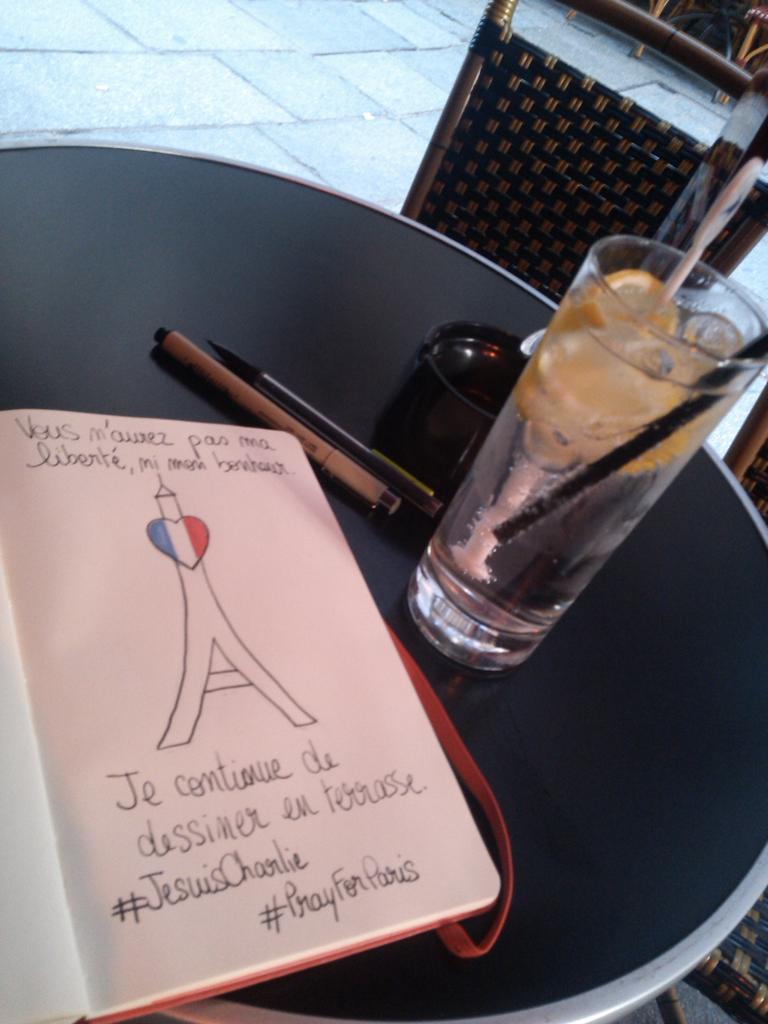 Vous n'aurez pas ma
liberté, ni mon bonheur.
Je continue de
dessiner en terrasse.
#JesuisCharlie
#PrayForParis